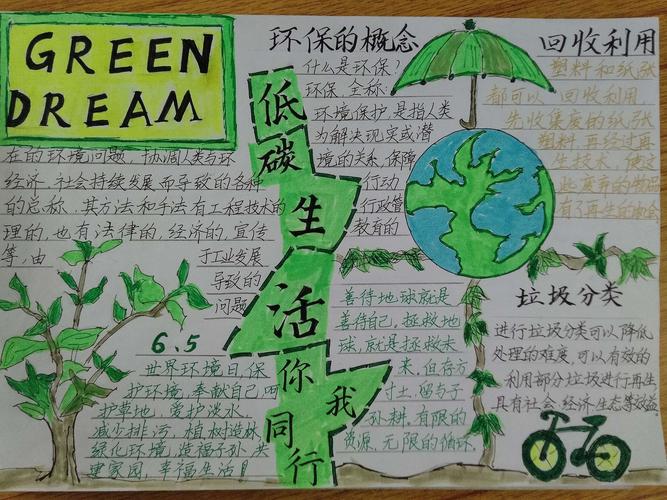 GREEN
DREAM
环保的概念
什么是环保?
环保 全称:
环境保护,是指人类
为解决现实或潜
在的环境问题, 协调人类与环
境的关系,保障
经济、社会持续发展而导致的各种
行动
的总称。其方法和手法有工程技术的
行政管
理的,也有法律的,经济的,宣传
教育的
等,由
于工业发展
导致的
问题
低
碳
生
活
你
我
同
行
6.5
世界环境日,保
护环境,奉献自己,呵
护草地、爱护淡水,
减少排污,植树造林
绿化环境,造福子孙,共
建家园,幸福生活!
善待地球就是
善待自己,拯救地
球,就是拯救未
来,但存方
寸土,留与子
孙耕,有限的
资源,无限的循环。
回收利用
塑料和纸张
都可以回收利用,
先收集废的纸张
塑料,再经过再
生技术,使这
些废弃的物品
有了再生的机会
垃圾分类
进行垃圾分类可以降低
处理的难度,可以有效的
利用部分垃圾进行再生
具有社会、经济、生态等效益